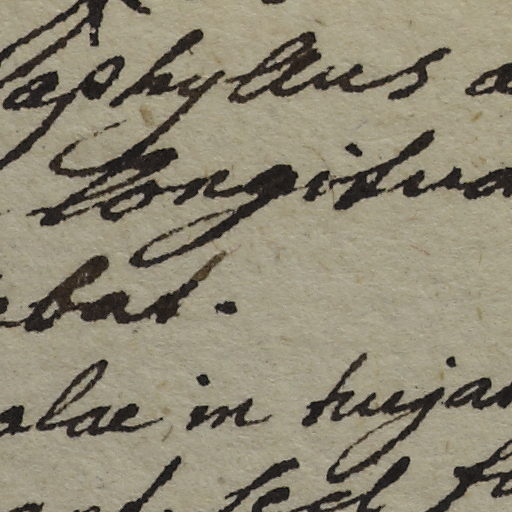 aphyllus a
longitud
bat.
alae in hujan
sed